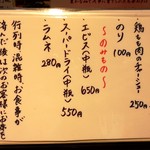 鶏もも肉のチャーシュー
250
のり
100円
〜のみもの〜
エビス(中瓶)
650円
スーパードライ(中瓶)
550円
ラムネ
280円
行列時、混雑時、お食事が
済んだ後は次のお客様にお席を